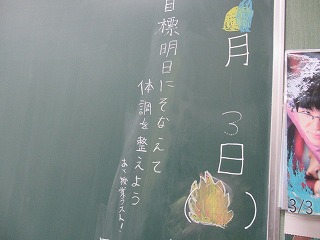 月 3日
( )
目標明日にそなえて
体調を整えよう
ラスト!
3/3